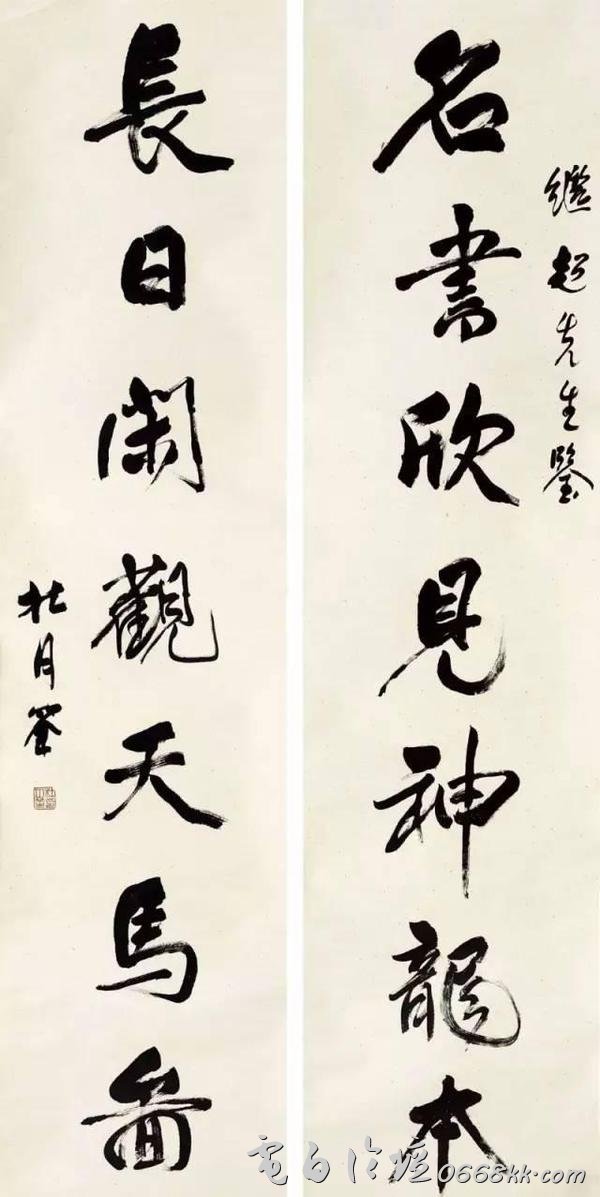 繼超先生鑒
名書欣見神龍本
長日閑觀天馬圖
杜月笙
電白論壇0668kk.com